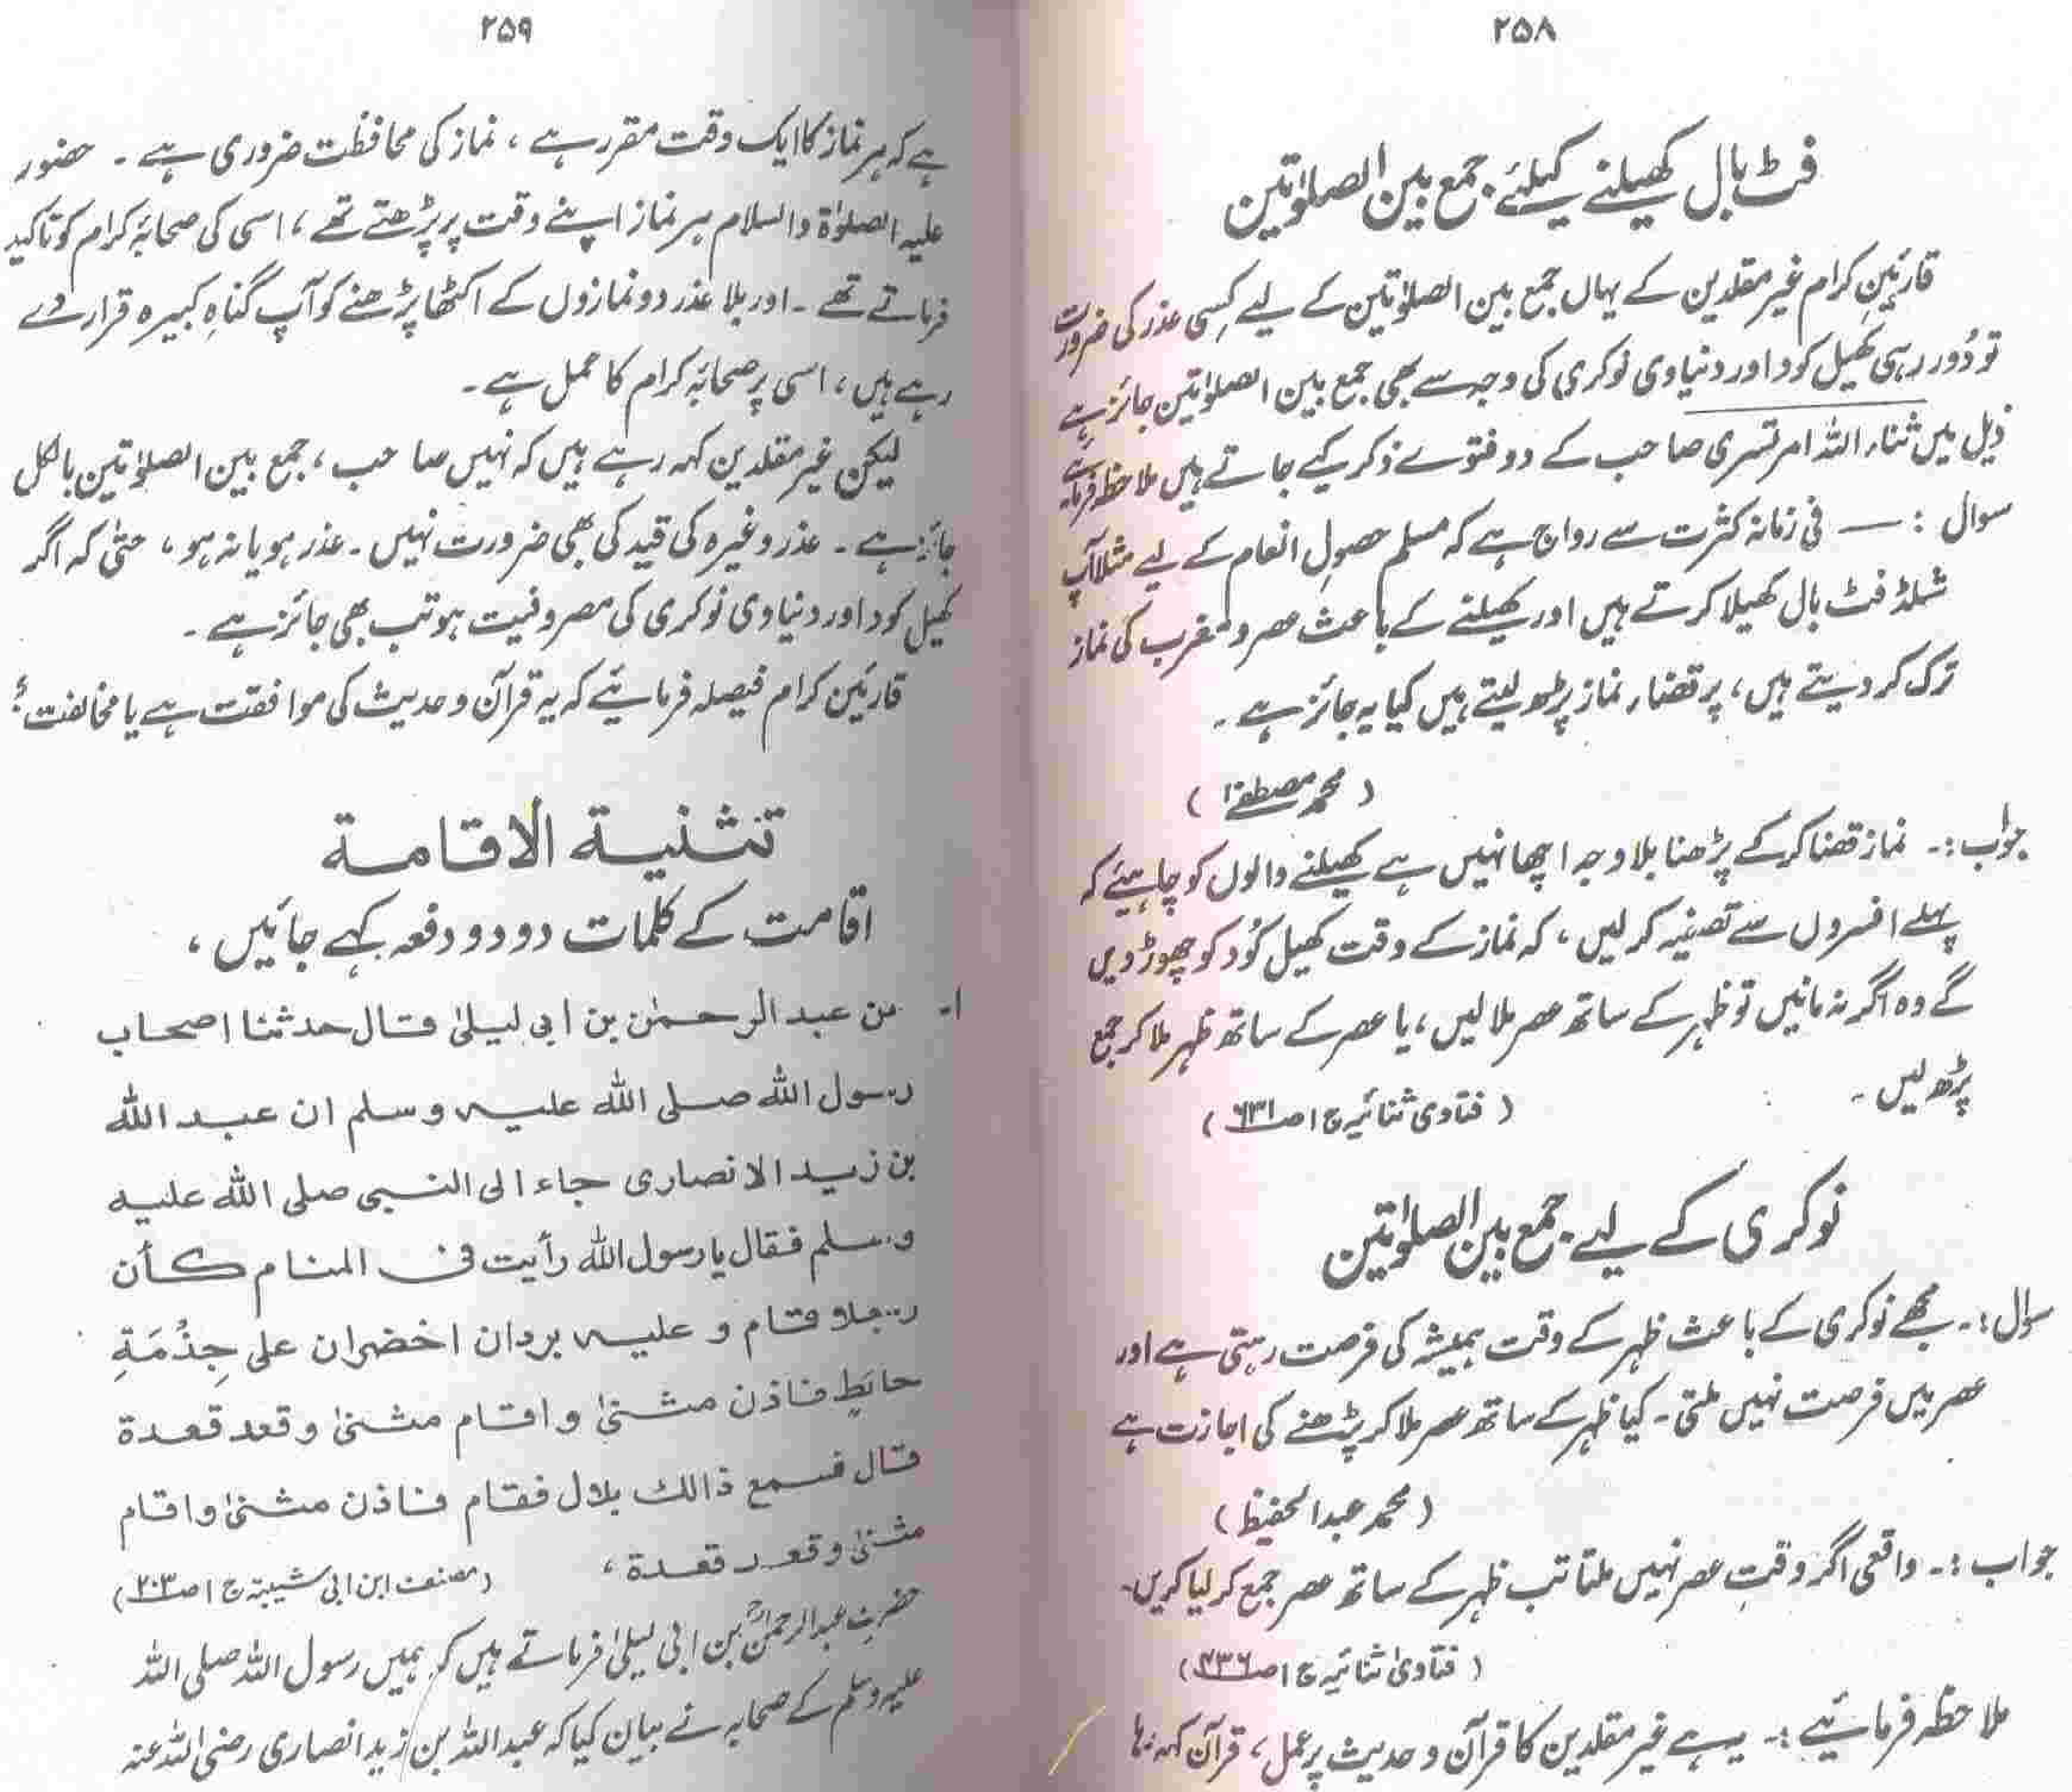 ۲۵۸
فٹ بال کھیلنے کیلئے جمع بین الصلوٰتین
قارئینِ کرام غیر مقلدین کے یہاں جمع بین الصلوٰتین کے لیے کسی عذر کی ضرورت
تو دُور رہی کھیل کود اور دنیاوی نوکری کی وجہ سے بھی جمع بین الصلوٰتین جائز ہے
ذیل میں ثناء اللہ امرتسری صاحب کے دو فتوے ذکر کیے جاتے ہیں ملاحظہ فرمائیے
سوال :— فی زمانہ کثرت سے رواج ہے کہ مسلم حصولِ انعام کے لیے مثلاً آپ
شلڈ فٹ بال کھیلا کرتے ہیں اور کھیلنے کے باعث عصر و مغرب کی نماز
ترک کر دیتے ہیں، پر قضاء نماز پڑھ لیتے ہیں کیا یہ جائز ہے۔
(محمد مصطفےٰ)
جواب :۔ نماز قضا کر کے پڑھنا بلا وجہ اچھا نہیں ہے کھیلنے والوں کو چاہیئے کہ
پہلے افسروں سے تصفیہ کر لیں، کہ نماز کے وقت کھیل کُود کو چھوڑ دیں
گے وہ اگر نہ مانیں تو ظہر کے ساتھ عصر ملا لیں، یا عصر کے ساتھ ظہر ملا کر جمع
پڑھ لیں۔ (فتاوی ثنائیہ ج ۱ ص ۶۳۱)
نوکری کے لیے جمع بین الصلوٰتین
سوال :۔ مجھے نوکری کے باعث ظہر کے وقت ہمیشہ کی فرصت رہتی ہے اور
عصر میں فرصت نہیں ملتی۔ کیا ظہر کے ساتھ عصر ملا کر پڑھنے کی اجازت ہے
(محمد عبد الحفیظ)
جواب :۔ واقعی اگر وقتِ عصر نہیں ملتا تب ظہر کے ساتھ عصر جمع کر لیا کریں۔
(فتاویٰ ثنائیہ ج ۱ ص)
ملاحظہ فرمائیے :۔ یہ ہے غیر مقلدین کا قرآن و حدیث پر عمل، قرآن کہہ رہا
۲۵۹
ہے کہ ہر نماز کا ایک وقت مقرر ہے، نماز کی محافظت ضروری ہے۔ حضور
علیہ الصلوٰۃ والسلام ہر نماز اپنے وقت پر پڑھتے تھے، اسی کی صحابۂ کرام کو تاکید
فرماتے تھے۔ اور بلا عذر دو نمازوں کے اکٹھا پڑھنے کو آپ گناہِ کبیرہ قرار دے
رہے ہیں، اسی پر صحابۂ کرام کا عمل ہے۔
لیکن غیر مقلدین کہہ رہے ہیں کہ نہیں صاحب، جمع بین الصلوٰتین بالکل
جائز ہے۔ عذر وغیرہ کی قید کی بھی ضرورت نہیں۔ عذر ہو یا نہ ہو، حتیٰ کہ اگر
کھیل کود اور دنیاوی نوکری کی مصروفیت ہو تب بھی جائز ہے۔
قارئین کرام فیصلہ فرمائیے کہ یہ قرآن و حدیث کی موافقت ہے یا مخالفت؟
تثنیۃ الاقامۃ
اقامت کے کلمات دو دو دفعہ کہے جائیں،
۱۔ عن عبد الرحمٰن بن ابی لیلیٰ قال حدثنا اصحاب
رسول اللہ صلی اللہ علیہ وسلم ان عبد اللہ
بن زید الانصاری جاء الی النبی صلی اللہ علیہ
وسلم فقال یا رسول اللہ رأیت فی المنام کأن
رجلا قام و علیہ بردان اخضران علی جِذْمَةِ
حائطٍ فاذن مثنیٰ و اقام مثنیٰ و قعد قعدة
قال فسمع ذالک بلال فقام فاذن مثنیٰ و اقام
مثنیٰ و قعد قعدة، (مصنف ابن ابی شیبۃ ج ۱ ص ۲۰۳)
حضرت عبد الرحمٰنؒ بن ابی لیلیٰ فرماتے ہیں کہ ہمیں رسول اللہ صلی اللہ
علیہ وسلم کے صحابہ نے بیان کیا کہ عبد اللہ بن زید انصاری رضی اللہ عنہ